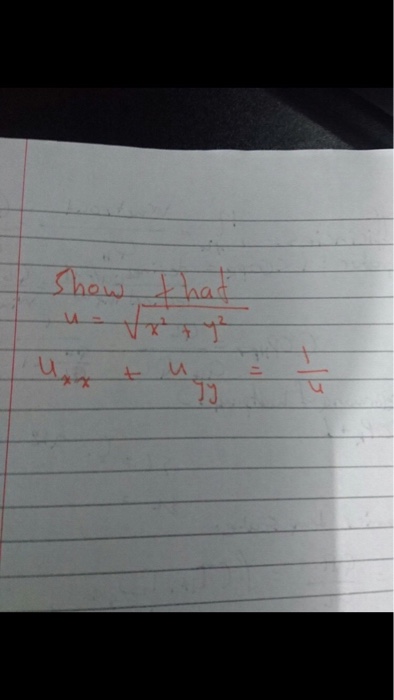 Show that
u = √x² + y²
u_xx + u_yy = 1/u